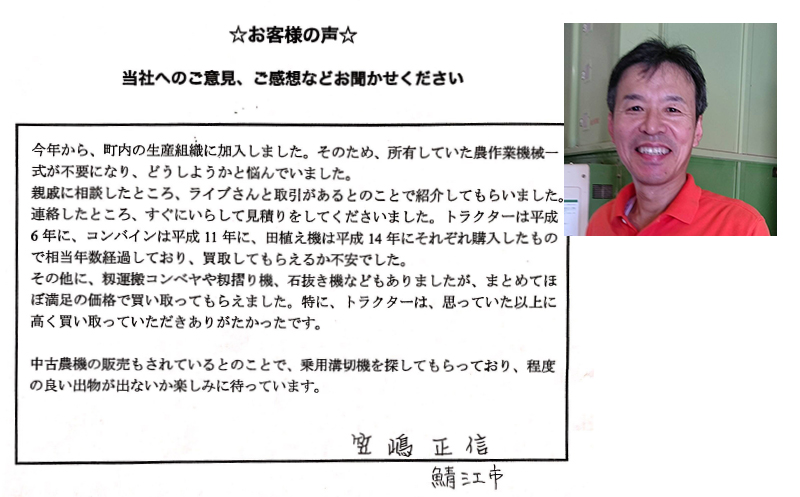 ☆お客様の声☆
当社へのご意見、ご感想などお聞かせください
今年から、町内の生産組織に加入しました。そのため、所有していた農作業機械一
式が不要になり、どうしようかと悩んでいました。
親戚に相談したところ、ライブさんと取引があるとのことで紹介してもらいました。
連絡したところ、すぐにいらして見積りをしてくださいました。トラクターは平成
6年に、コンバインは平成11年に、田植え機は平成14年にそれぞれ購入したもの
で相当年数経過しており、買取してもらえるか不安でした。
その他に、籾運搬コンベヤや籾摺り機、石抜き機などもありましたが、まとめてほ
ぼ満足の価格で買い取ってもらえました。特に、トラクターは、思っていた以上に
高く買い取っていただきありがたかったです。
中古農機の販売もされているとのことで、乗用溝切機を探してもらっており、程度
の良い出物が出ないか楽しみに待っています。
嶋 正信
鯖江市